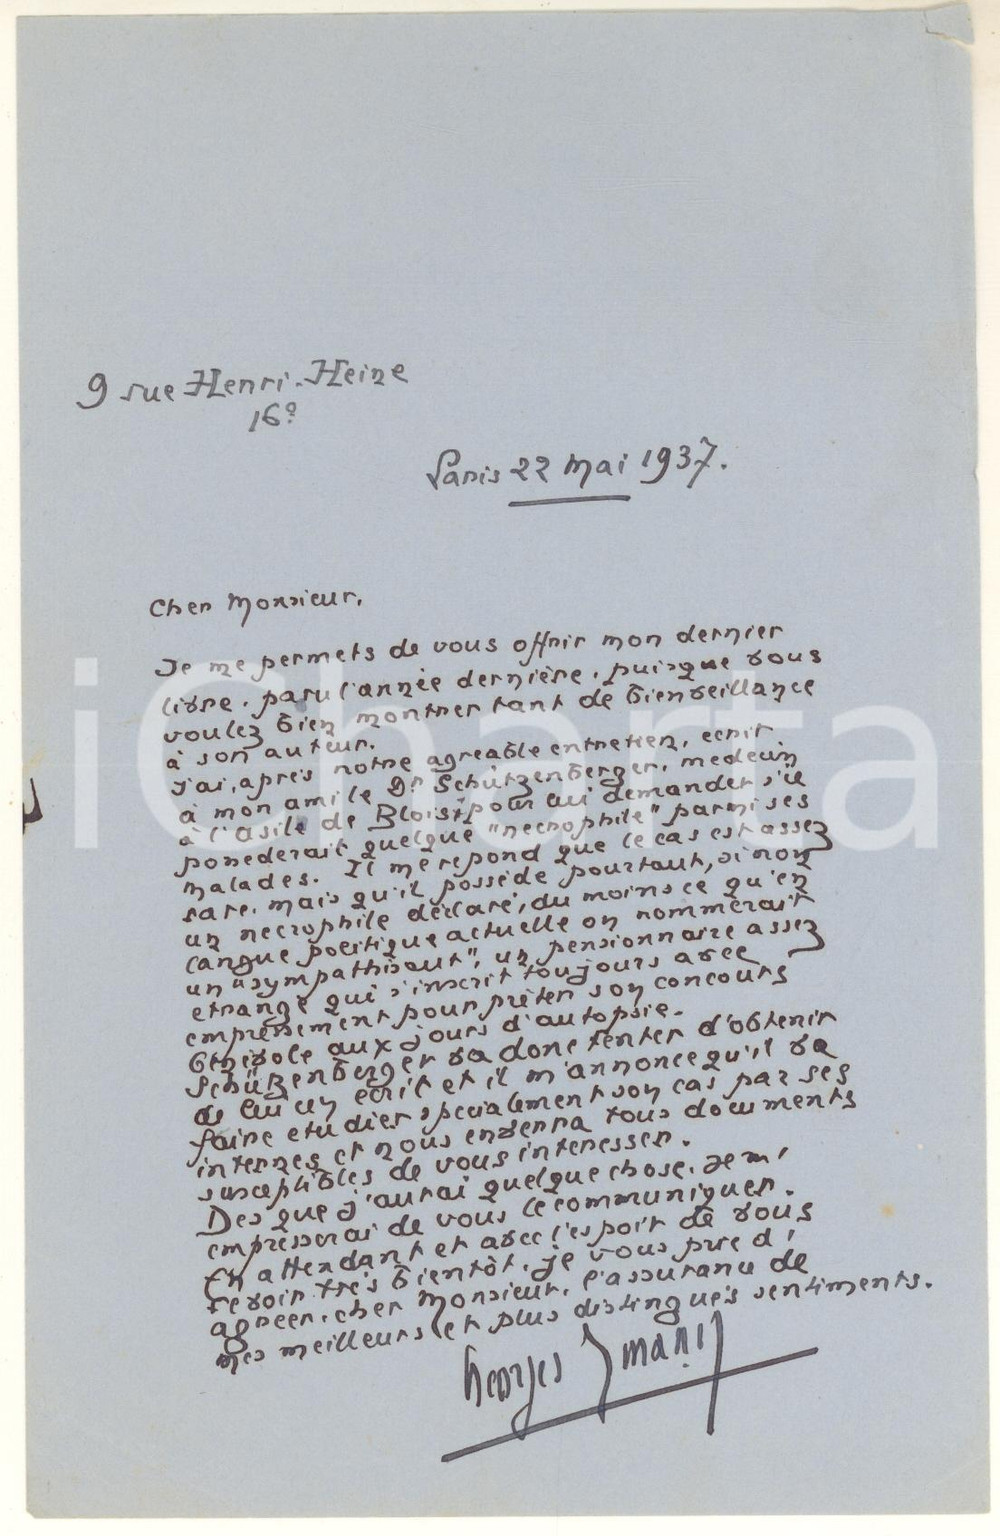 9 rue Henri-Heine
16º
Paris 22 mai 1937.
Cher Monsieur,
Je me permets de vous offrir mon dernier
livre, paru l'année dernière, puisque vous
voulez bien montrer tant de bienveillance
à son auteur.
J'ai, après notre agréable entretien, ecrit
à mon ami le Dr Schützenberger, medecin
à l'asile de Blois, pour lui demander s'il
possederait quelque "necrophile" parmi ses
malades. Il me repond que le cas est assez
rare, mais qu'il possède pourtant, si non
un necrophile déclaré, du moins ce qu'en
langue politique actuelle on nommerait
un "sympathisant", un pensionnaire assez
etrange qui s'inscrit toujours avec
empressement pour prêter son concours
bénévole aux jours d'autopsie.
Schützenberger va donc tenter d'obtenir
de lui un écrit et il m'annonce qu'il va
faire etudier specialement son cas par ses
internes et nous enverra tous documents
susceptibles de vous interesser.
Des que j'aurai quelque chose, je m'
empresserai de vous le communiquer.
En attendant et avec l'espoir de vous
revoir très bientôt, je vous prie d'
agreer, cher Monsieur, l'assurance de
mes meilleurs et plus distingués sentiments.
Georges Imann
iCharta